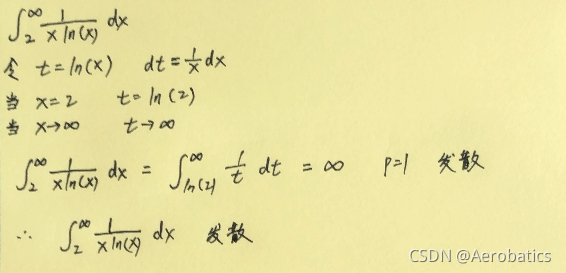 ∫₂^∞ 1/(x ln(x)) dx
令 t = ln(x) dt = 1/x dx
当 x = 2 t = ln(2)
当 x→∞ t→∞
∫₂^∞ 1/(x ln(x)) dx = ∫_{ln(2)}^∞ 1/t dt = ∞ P=1 发散
∴ ∫₂^∞ 1/(x ln(x)) dx 发散
CSDN @Aerobatics